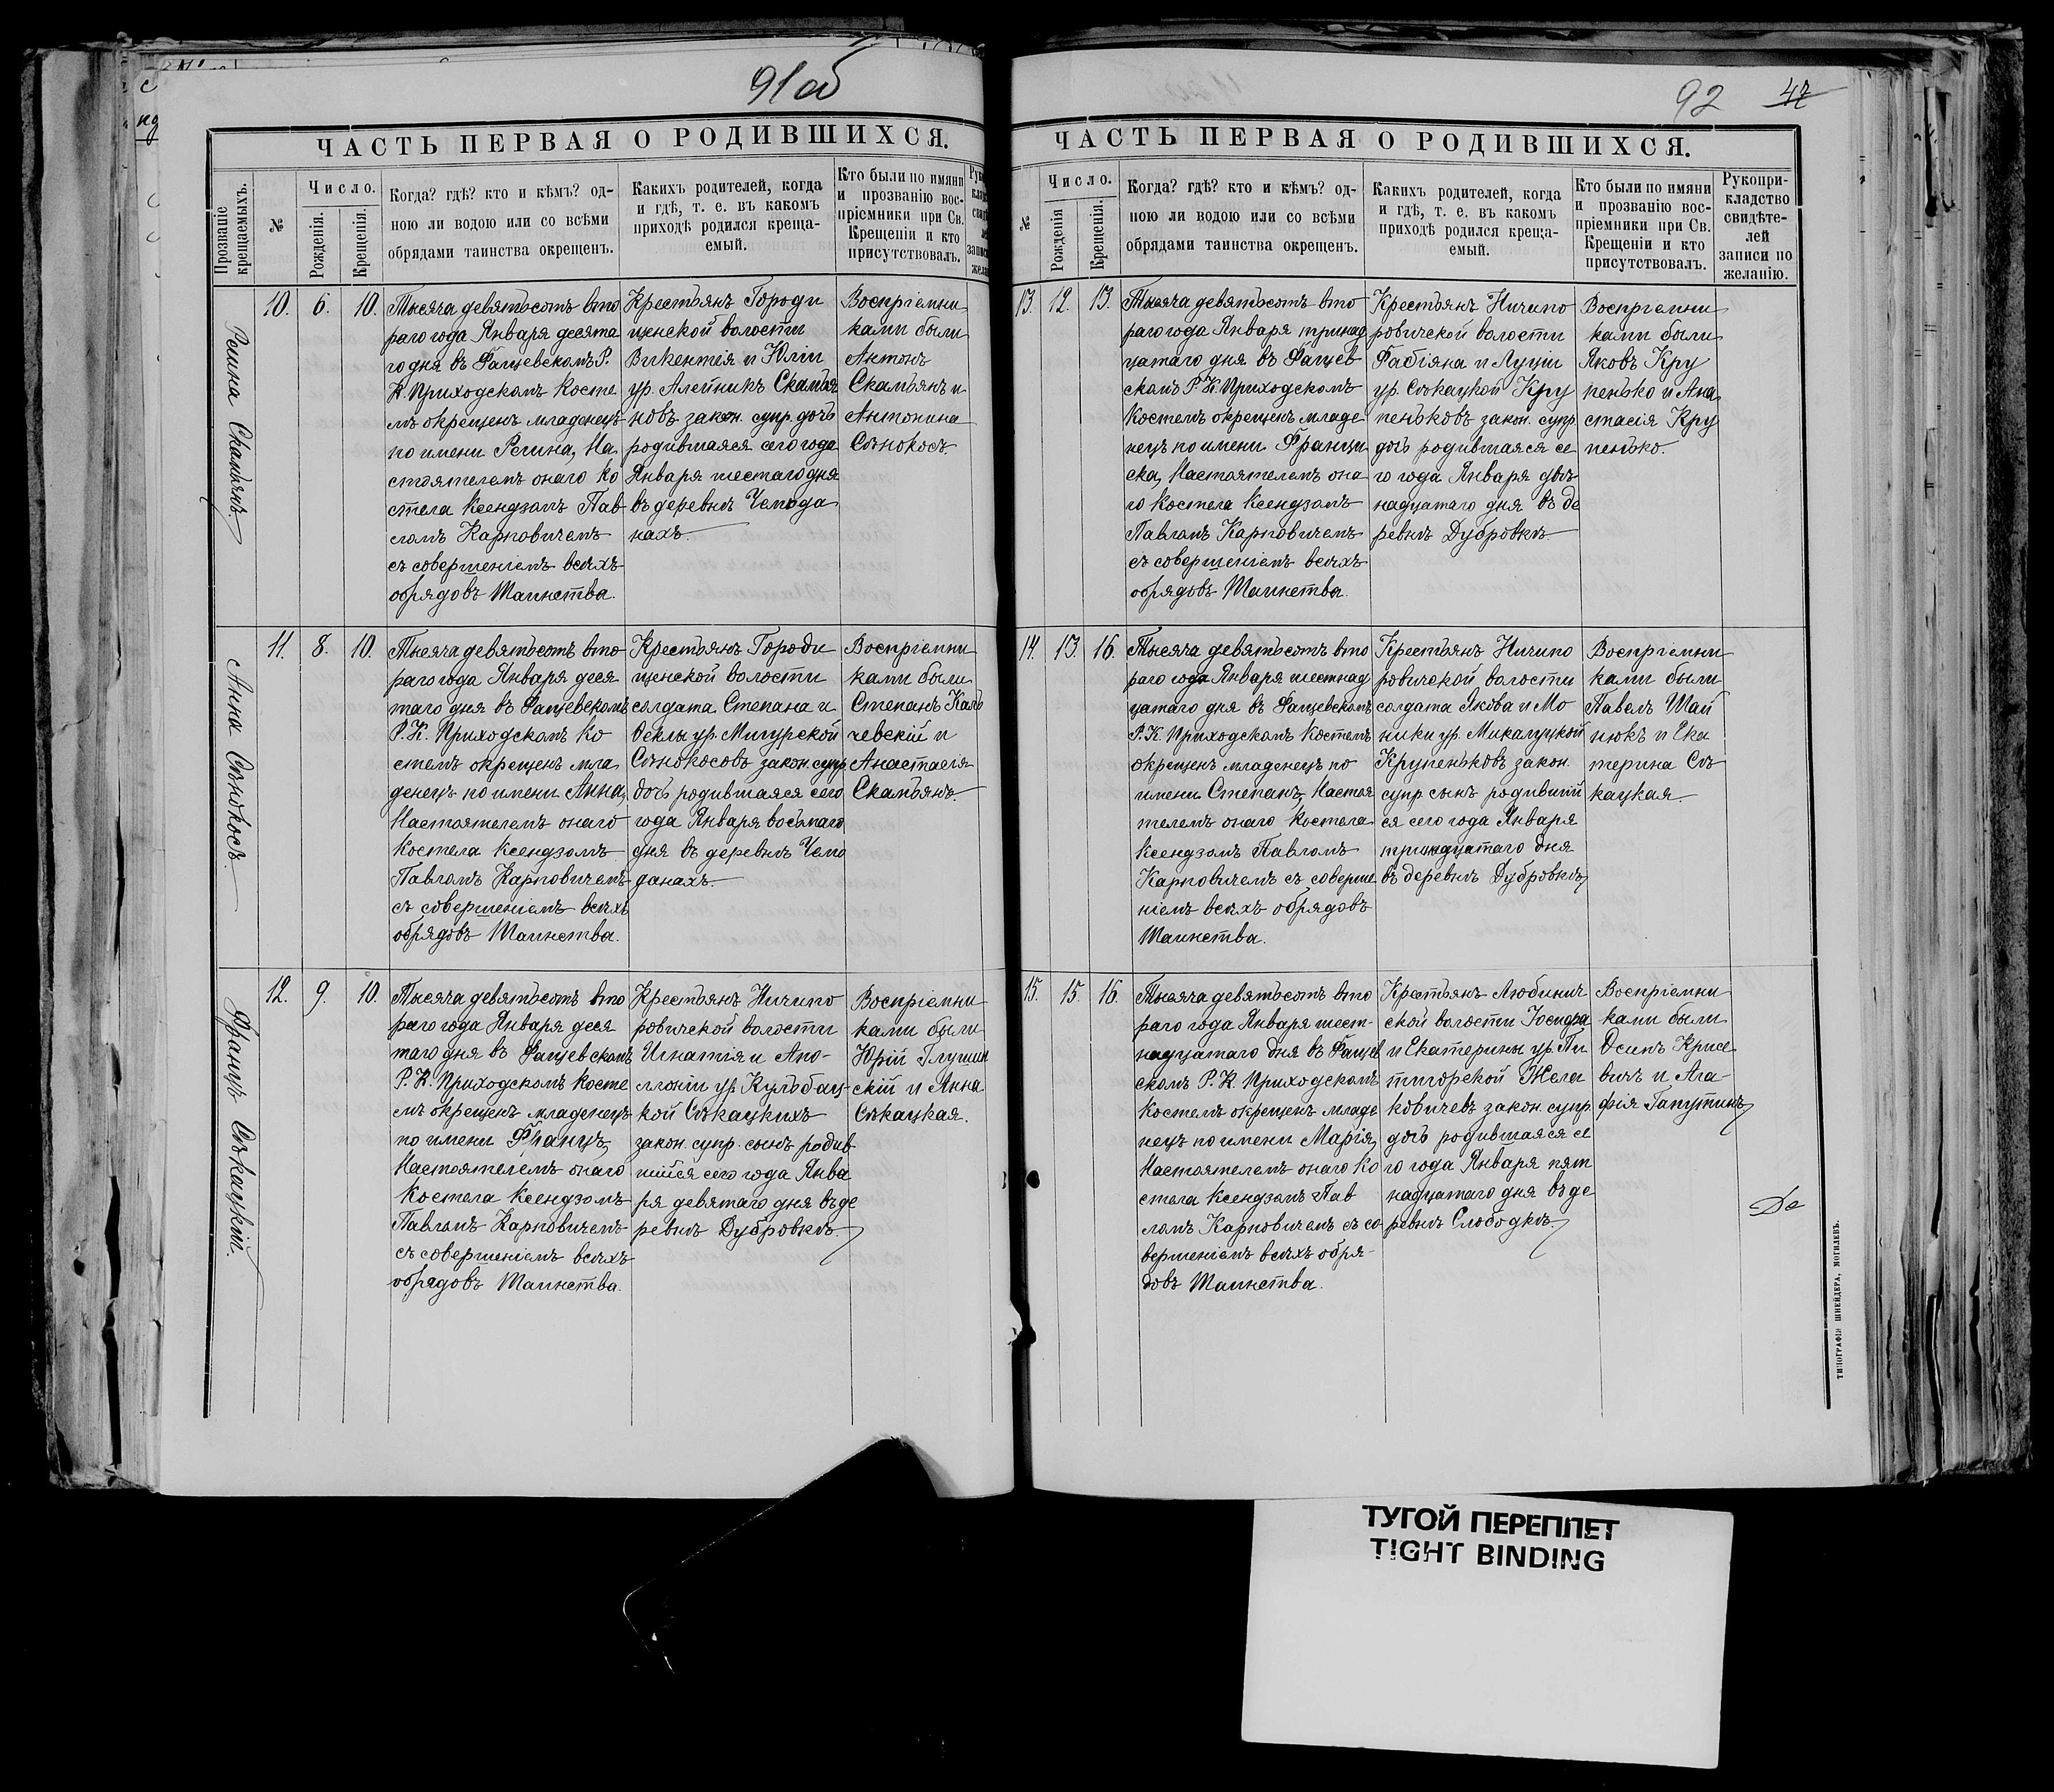 91об
ЧАСТЬ ПЕРВАЯ О РОДИВШИХСЯ.
Прозваніе крещаемыхъ.
№
Число.
Рожденія.
Крещенія.
Когда? гдѣ? кто и кѣмъ? од-
ною ли водою или со всѣми
обрядами таинства окрещенъ.
Какихъ родителей, когда
и гдѣ, т. е. въ какомъ
приходѣ родился креща-
емый.
Кто были по имяни
и прозванію вос-
пріемники при Св.
Крещеніи и кто
присутствовалъ.
Регина Скамьянъ.
10. 6. 10.
Тысяча девятьсотъ вто
раго года Января десята
го дня въ Фащевскомъ Р.
К. Приходскомъ Косте
лѣ окрещенъ младенецъ
по имени Регина, На
стоятелемъ онаго Ко
стела Ксендзомъ Пав
ломъ Карповичемъ
съ совершеніемъ всѣхъ
обрядовъ Таинства.
Крестьянъ Городи
щенской волости
Викентія и Юліи
ур. Алейникъ Скамья
новъ закон. супр. дочь
родившаяся сего года
Января шестаго дня
въ деревнѣ Чемода
нахъ.
Воспріемни
ками были
Антонъ
Скамьянъ и
Антонина
Сѣнокосъ.
Анна Сѣнокосъ.
11. 8. 10.
Тысяча девятьсотъ вто
раго года Января деся
таго дня въ Фащевскомъ
Р. К. Приходскомъ Ко
стелѣ окрещенъ мла
денецъ по имени Анна,
Настоятелемъ онаго
Костела Ксендзомъ
Павломъ Карповичемъ
съ совершеніемъ всѣхъ
обрядовъ Таинства.
Крестьянъ Городи
щенской волости
солдата Степана и
Ѳеклы ур. Мигурской
Сѣнокосовъ закон. супр
дочь родившаяся сего
года Января восьмаго
дня въ деревнѣ Чемо
данахъ.
Воспріемни
ками были
Степанъ Каль
чевскій и
Анастасія
Скамьянъ.
Францъ Сѣкацкій.
12. 9. 10.
Тысяча девятьсотъ вто
раго года Января деся
таго дня въ Фащевскомъ
Р. К. Приходскомъ Косте
лѣ окрещенъ младенецъ
по имени Францъ,
Настоятелемъ онаго
Костела Ксендзомъ
Павломъ Карповичемъ
съ совершеніемъ всѣхъ
обрядовъ Таинства.
Крестьянъ Ничипо
ровичской волости
Игнатія и Апо-
ллоніи ур. Кульбац-
кой Сѣкацкихъ
закон. супр. сынъ родив
шійся сего года Янва
ря девятаго дня въ де
ревнѣ Дубровкѣ.
Воспріемни
ками были
Юрій Глушин
скій и Анна
Сѣкацкая.
92 47
ЧАСТЬ ПЕРВАЯ О РОДИВШИХСЯ.
№
Число.
Рожденія
Крещенія.
Когда? гдѣ? кто и кѣмъ? од-
ною ли водою или со всѣми
обрядами таинства окрещенъ.
Какихъ родителей, когда
и гдѣ, т. е. въ какомъ
приходѣ родился креща-
емый.
Кто были по имяни
и прозванію вос-
пріемники при Св.
Крещеніи и кто
присутствовалъ.
Рукопри-
кладство
свидѣте-
лей
записи по
желанію.
13. 12. 13.
Тысяча девятьсотъ вто
раго года Января тринад
цатаго дня въ Фащев
скомъ Р. К. Приходскомъ
Костелѣ окрещенъ младе
нецъ по имени Францис
ка, Настоятелемъ она
го Костела Ксендзомъ
Павломъ Карповичемъ
съ совершеніемъ всѣхъ
обрядовъ Таинства.
Крестьянъ Ничипо
ровичской волости
Фабіяна и Луціи
ур. Сѣкацкой Кру
пеньковъ закон. супр.
дочь родившаяся се
го года Января двѣ
надцатаго дня въ де
ревнѣ Дубровкѣ
Воспріемни
ками были
Яковъ Кру
пенько и Ана
стасія Кру
пенько.
14. 13. 16.
Тысяча девятьсотъ вто
раго года Января шестнад
цатаго дня въ Фащевскомъ
Р. К. Приходскомъ Костелѣ
окрещенъ младенецъ по
имени Степанъ, Настоя
телемъ онаго Костела
Ксендзомъ Павломъ
Карповичемъ съ соверше
ніемъ всѣхъ обрядовъ
Таинства.
Крестьянъ Ничипо
ровичской волости
солдата Якова и Мо
ники ур. Микалуцкой
Крупеньковъ закон.
супр. сынъ родившій
ся сего года Января
тринадцатаго дня
въ деревнѣ Дубровкѣ
Воспріемни
ками были
Павелъ Шай
нюкъ и Ека
терина Сѣ
кацкая.
15. 15. 16.
Тысяча девятьсотъ вто
раго года Января шест-
надцатаго дня въ Фащев
скомъ Р. К. Приходскомъ
Костелѣ окрещенъ младе
нецъ по имени Марія,
Настоятелемъ онаго Ко
стела Ксендзомъ Пав
ломъ Карповичемъ съ со
вершеніемъ всѣхъ обря-
довъ Таинства.
Крестьянъ Любинич
ской волости Іосифа
и Екатерины ур. Пя
тигорской Жела
ковичевъ закон. супр.
дочь родившаяся се
го года Января пят
надцатаго дня въ де
ревнѣ Слободкѣ.
Воспріемни
ками были
Осипъ Крисе
вичъ и Ага-
фія Гапутинъ
До
ТИПОГРАФІЯ ШНЕЙДЕРА, МОГИЛЕВЪ.
ТУГОЙ ПЕРЕПЛЕТ
TIGHT BINDING